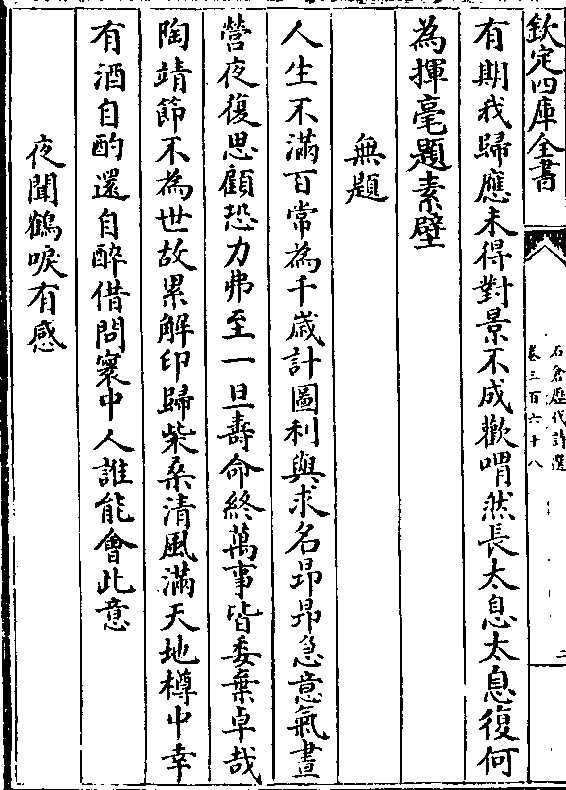 欽定四庫全書
石倉歷代詩選
卷三百六十八
二
有期我歸應未得對景不成歡喟然長太息太息復何
為揮毫題素壁
無題
人生不滿百常為千歲計圖利與求名昂昂急意氣晝
營夜復思顧恐力弗至一旦壽命終萬事皆委棄卓哉
陶靖節不為世故累解印歸柴桑清風滿天地樽中幸
有酒自酌還自醉借問寰中人誰能會此意
夜聞鶴唳有感